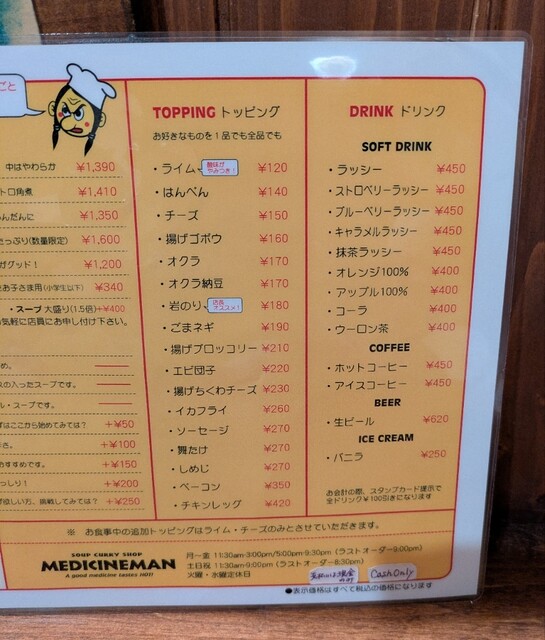 ごと
中はやわらか ¥1,390
トロ角煮 ¥1,410
んだんに ¥1,350
たっぷり(数量限定) ¥1,600
がグッド！ ¥1,200
お子さま用(小学生以下) ¥340
・スープ大盛り(1.5倍)+¥400
気軽に店員にお申し付け下さい。
め。
スの入ったスープです。
ル・スープです。
ずはここから始めてみては？ +¥50
辛さ。 +¥100
おすすめです。 +¥150
っしり！ +¥200
欲しい方、挑戦してみては？ +¥250
TOPPING トッピング
お好きなものを1品でも全品でも
・ライム 酸味がやみつき！ ¥120
・はんぺん ¥140
・チーズ ¥150
・揚げゴボウ ¥160
・オクラ ¥170
・オクラ納豆 ¥170
・岩のり 店長オススメ！ ¥180
・ごまネギ ¥190
・揚げブロッコリー ¥210
・エビ団子 ¥220
・揚げちくわチーズ ¥230
・イカフライ ¥260
・ソーセージ ¥270
・舞たけ ¥270
・しめじ ¥270
・ベーコン ¥350
・チキンレッグ ¥420
DRINK ドリンク
SOFT DRINK
・ラッシー ¥450
・ストロベリーラッシー ¥450
・ブルーベリーラッシー ¥450
・キャラメルラッシー ¥450
・抹茶ラッシー ¥450
・オレンジ100% ¥400
・アップル100% ¥400
・コーラ ¥400
・ウーロン茶 ¥400
COFFEE
・ホットコーヒー ¥450
・アイスコーヒー ¥450
BEER
・生ビール ¥620
ICE CREAM
・バニラ ¥250
お会計の際、スタンプカード提示で
全ドリンク¥100引きになります
※ お食事中の追加トッピングはライム・チーズのみとさせていただきます。
SOUP CURRY SHOP
MEDICINEMAN
A good medicine tastes HOT!
月～金 11:30am-3:00pm/5:00pm-9:30pm (ラストオーダー9:00pm)
土日祝 11:30am-9:00pm (ラストオーダー8:30pm)
火曜・水曜定休日
支払いは現金のみ
Cash Only
●表示価格はすべて税込の価格になります